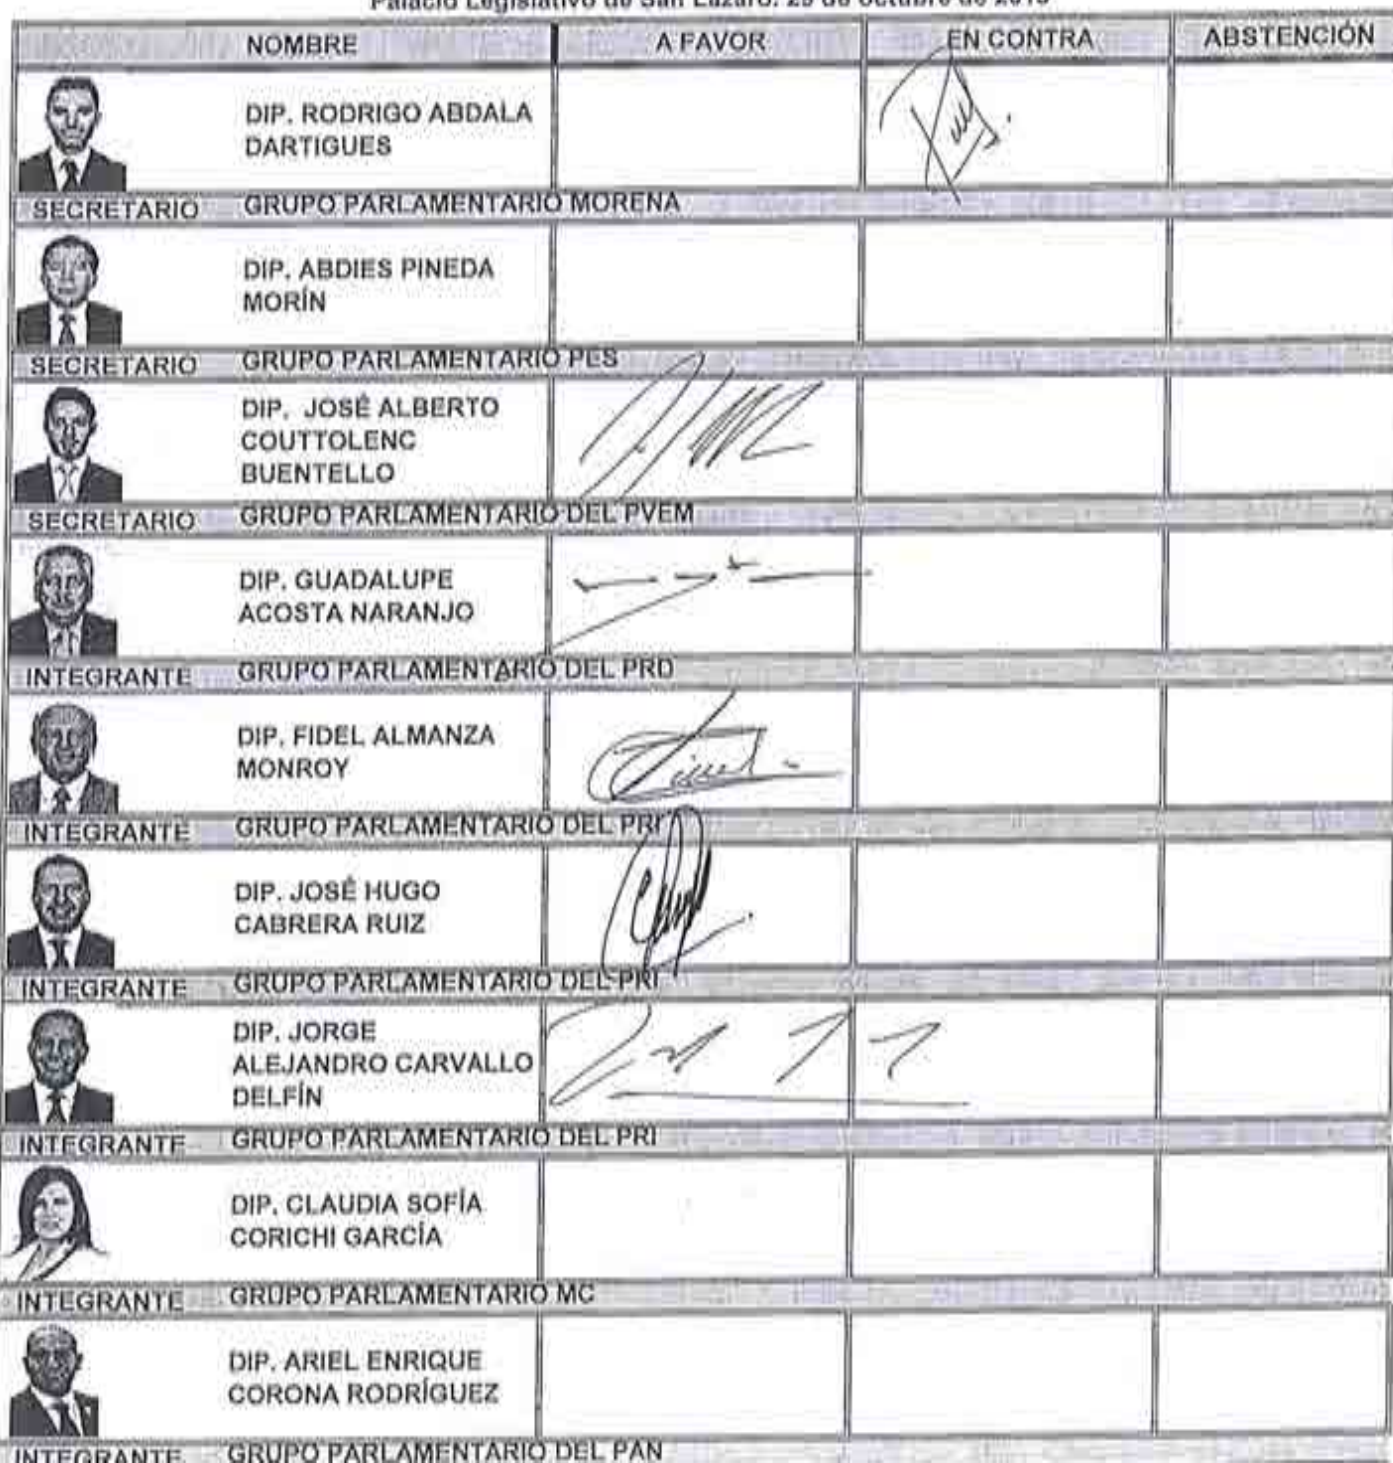 Palacio Legislativo de San Lázaro. 29 de octubre de 2015
NOMBRE A FAVOR EN CONTRA ABSTENCIÓN
DIP. RODRIGO ABDALA
DARTIGUES
SECRETARIO GRUPO PARLAMENTARIO MORENA
DIP. ABDIES PINEDA
MORÍN
SECRETARIO GRUPO PARLAMENTARIO PES
DIP. JOSÉ ALBERTO
COUTTOLENC
BUENTELLO
SECRETARIO GRUPO PARLAMENTARIO DEL PVEM
DIP. GUADALUPE
ACOSTA NARANJO
INTEGRANTE GRUPO PARLAMENTARIO DEL PRD
DIP. FIDEL ALMANZA
MONROY
INTEGRANTE GRUPO PARLAMENTARIO DEL PRI
DIP. JOSÉ HUGO
CABRERA RUIZ
INTEGRANTE GRUPO PARLAMENTARIO DEL PRI
DIP. JORGE
ALEJANDRO CARVALLO
DELFÍN
INTEGRANTE GRUPO PARLAMENTARIO DEL PRI
DIP. CLAUDIA SOFÍA
CORICHI GARCÍA
INTEGRANTE GRUPO PARLAMENTARIO MC
DIP. ARIEL ENRIQUE
CORONA RODRÍGUEZ
INTEGRANTE GRUPO PARLAMENTARIO DEL PAN